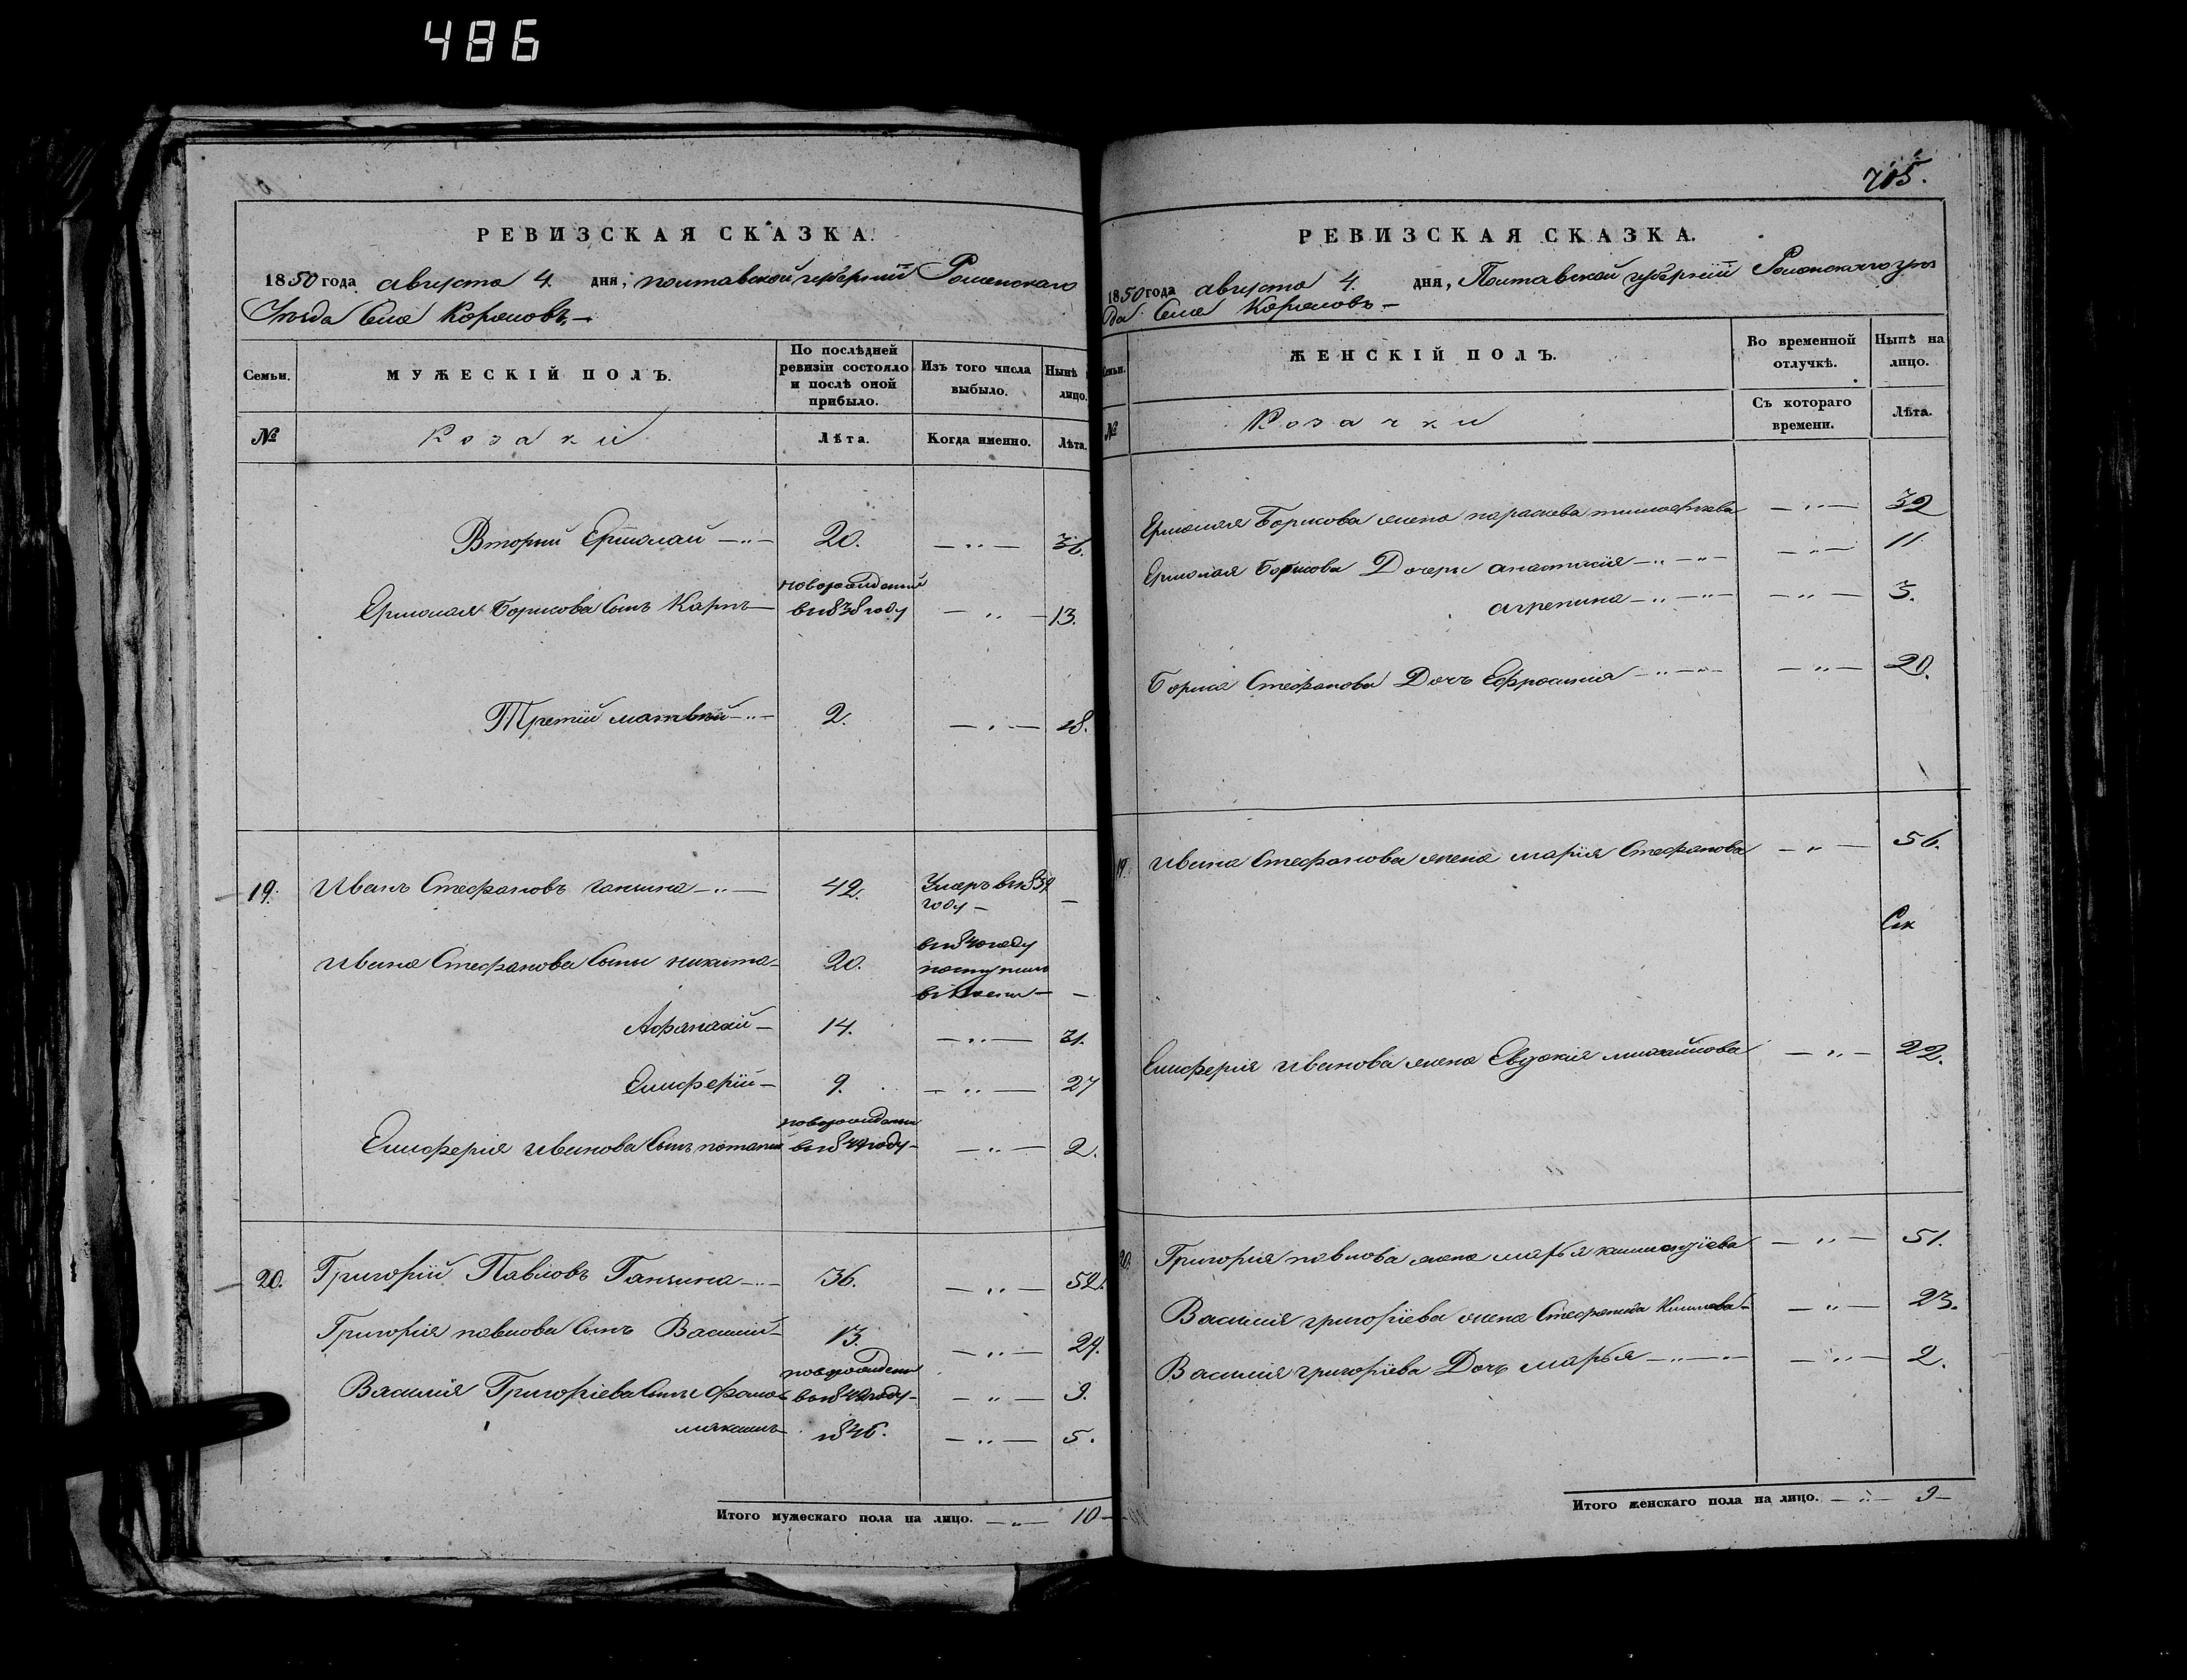 486
РЕВИЗСКАЯ СКАЗКА.
1850 года августа 4. дня, полтавской губернїи Роменскаго
Уѣзда Села Коровинъ
Семьи.
МУЖЕСКІЙ ПОЛЪ.
По послѣдней ревизіи состояло и послѣ оной прибыло.
Изъ того числа выбыло.
Нынѣ
лицо.
№
Козаки
Лѣта.
Когда именно.
Лѣта.
Вторый Ермолай —„— 20. —„— 36.
новорожденный
Ермолая Борисова Сынъ Карпъ — в 1838 году —„— 13.
Третїй матвей —„— 2. —„— 18.
19. Иванъ Стефановъ ганжа —„— 42. Умеръ в 1839 году — —
Ивана Стефанова Сыны никита — 20. в 1840 году поступилъ — —
Афанасїй — 14. —„— 31.
Елиферїй — 9. —„— 27
новорожденный
Елиферїя иванова Сынъ потапий в 1849 году —„— 2.
20. Григорїй Павловъ —„— 36. —„— 52.
Григорїя павлова Сынъ Василий — 13. —„— 29.
новорожденный
Василїя Григорїева Сыны фома в 1842 году —„— 9.
максимъ 1846. —„— 5.
Итого мужескаго пола на лицо. —„— 10 —
705.
РЕВИЗСКАЯ СКАЗКА.
1850 года августа 4. дня, Полтавской губернїи Роменскаго уѣз
да Села
Семьи.
ЖЕНСКІЙ ПОЛЪ.
Во временной отлучкѣ.
Нынѣ на лицо.
№
Козачки
Съ котораго времени.
Лѣта.
Ермолая Борисова жена параскева тимофѣева —„— 32
Ермолая Борисова Дочери анастасїя —„— —„— 11.
агрепина —„— —„— 3.
Бориса Стефанова Дочь Ефросинїя —„— —„— 20.
19. Ивана Стефанова жена марїя Стефанова —„— 56.
Елиферїя Иванова жена Евдокїя михайлова —„— 22.
20. Григорїя павлова жена марья —„— 51.
Василїя григорїева жена Стефанида —„— 23.
Василїя григорїева Дочь марья —„— —„— 2.
Итого женскаго пола на лицо. —„— 9 —